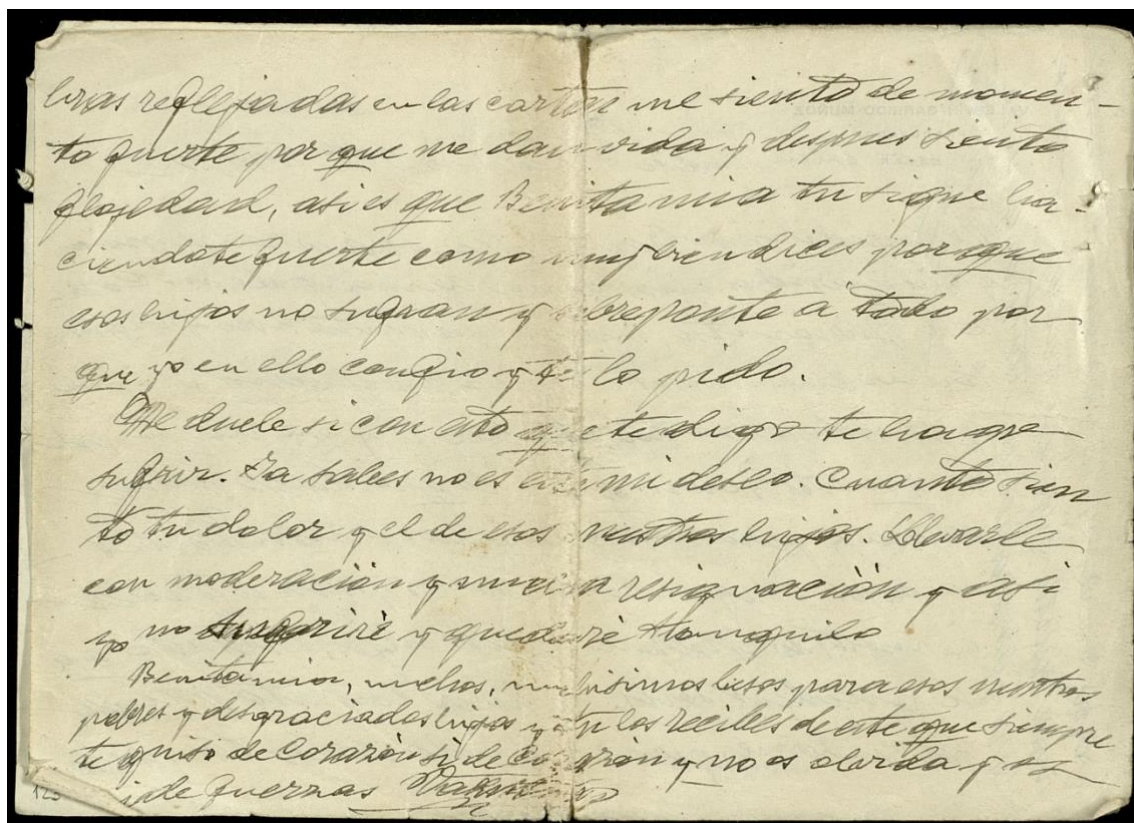 bras reflejadas en las cartas me siento de momen-
to fuerte por que me dan vida y despues siento
flojedad, asi es que Benita mia tu sigue ha-
ciendote fuerte como muy bien dices por que
esos hijos no sufran y sobreponte a todo por
que yo en ello confio y te lo pido.
Me duele si con esto que te digo te haga
sufrir. Ya sabes no es este mi deseo. Cuanto sien
to tu dolor y el de esos nuestros hijos. Llevarle
con moderación y mucha resignación y asi
yo no sufriré y quedaré tranquilo
Benita mia, muchos, muchisimos besos para esos nuestros
pobres y desgraciados hijos y tu los recibes de este que siempre
te quiso de corazón si de corazón y no os olvida y os
pide fuerzas
123